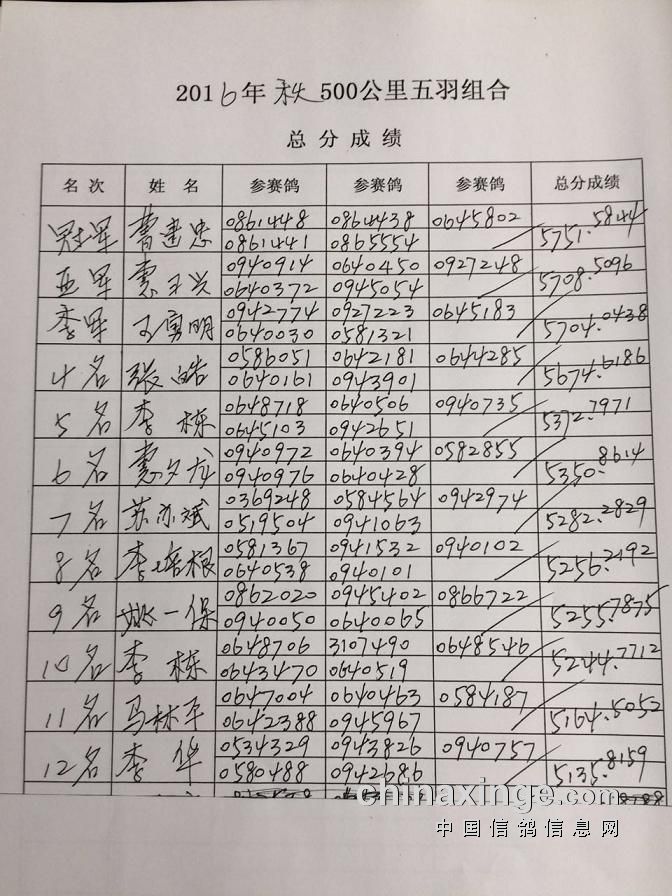 2016年 秋 500公里五羽组合
总分成绩
名次 姓名 参赛鸽 参赛鸽 参赛鸽 总分成绩
冠军 曹建忠 0861448 0864438 0645802 5751.5844
0861441 0865554
亚军 0940914 0640450 0927248 5708.5096
0640372 0945054
季军 王勇明 0942774 0927223 0645183 5704.0438
0640030 0581321
4名 张皓 0586051 0642181 0644285 5674.6186
0640161 0943901
5名 李栋 0648718 0640506 0940735 5372.7971
0645103 0942651
6名 0940972 0640394 0582855 5350.8614
0940976 0640428
7名 苏亦斌 0369248 0584564 0942974 5282.2829
0519504 0941063
8名 李培根 0581367 0941532 0940102 5256.2192
0640538 0940101
9名 姚一保 0862020 0945402 0866722 5255.7875
0940050 0640065
10名 李栋 0648706 3107490 0648546 5244.7712
0643470 0640519
11名 马林平 0647004 0640463 0584187 5164.5052
0642388 0945967
12名 李华 0534329 0943826 0940757 5135.8159
0580488 0942686
chinaxinge.com
中国信鸽信息网